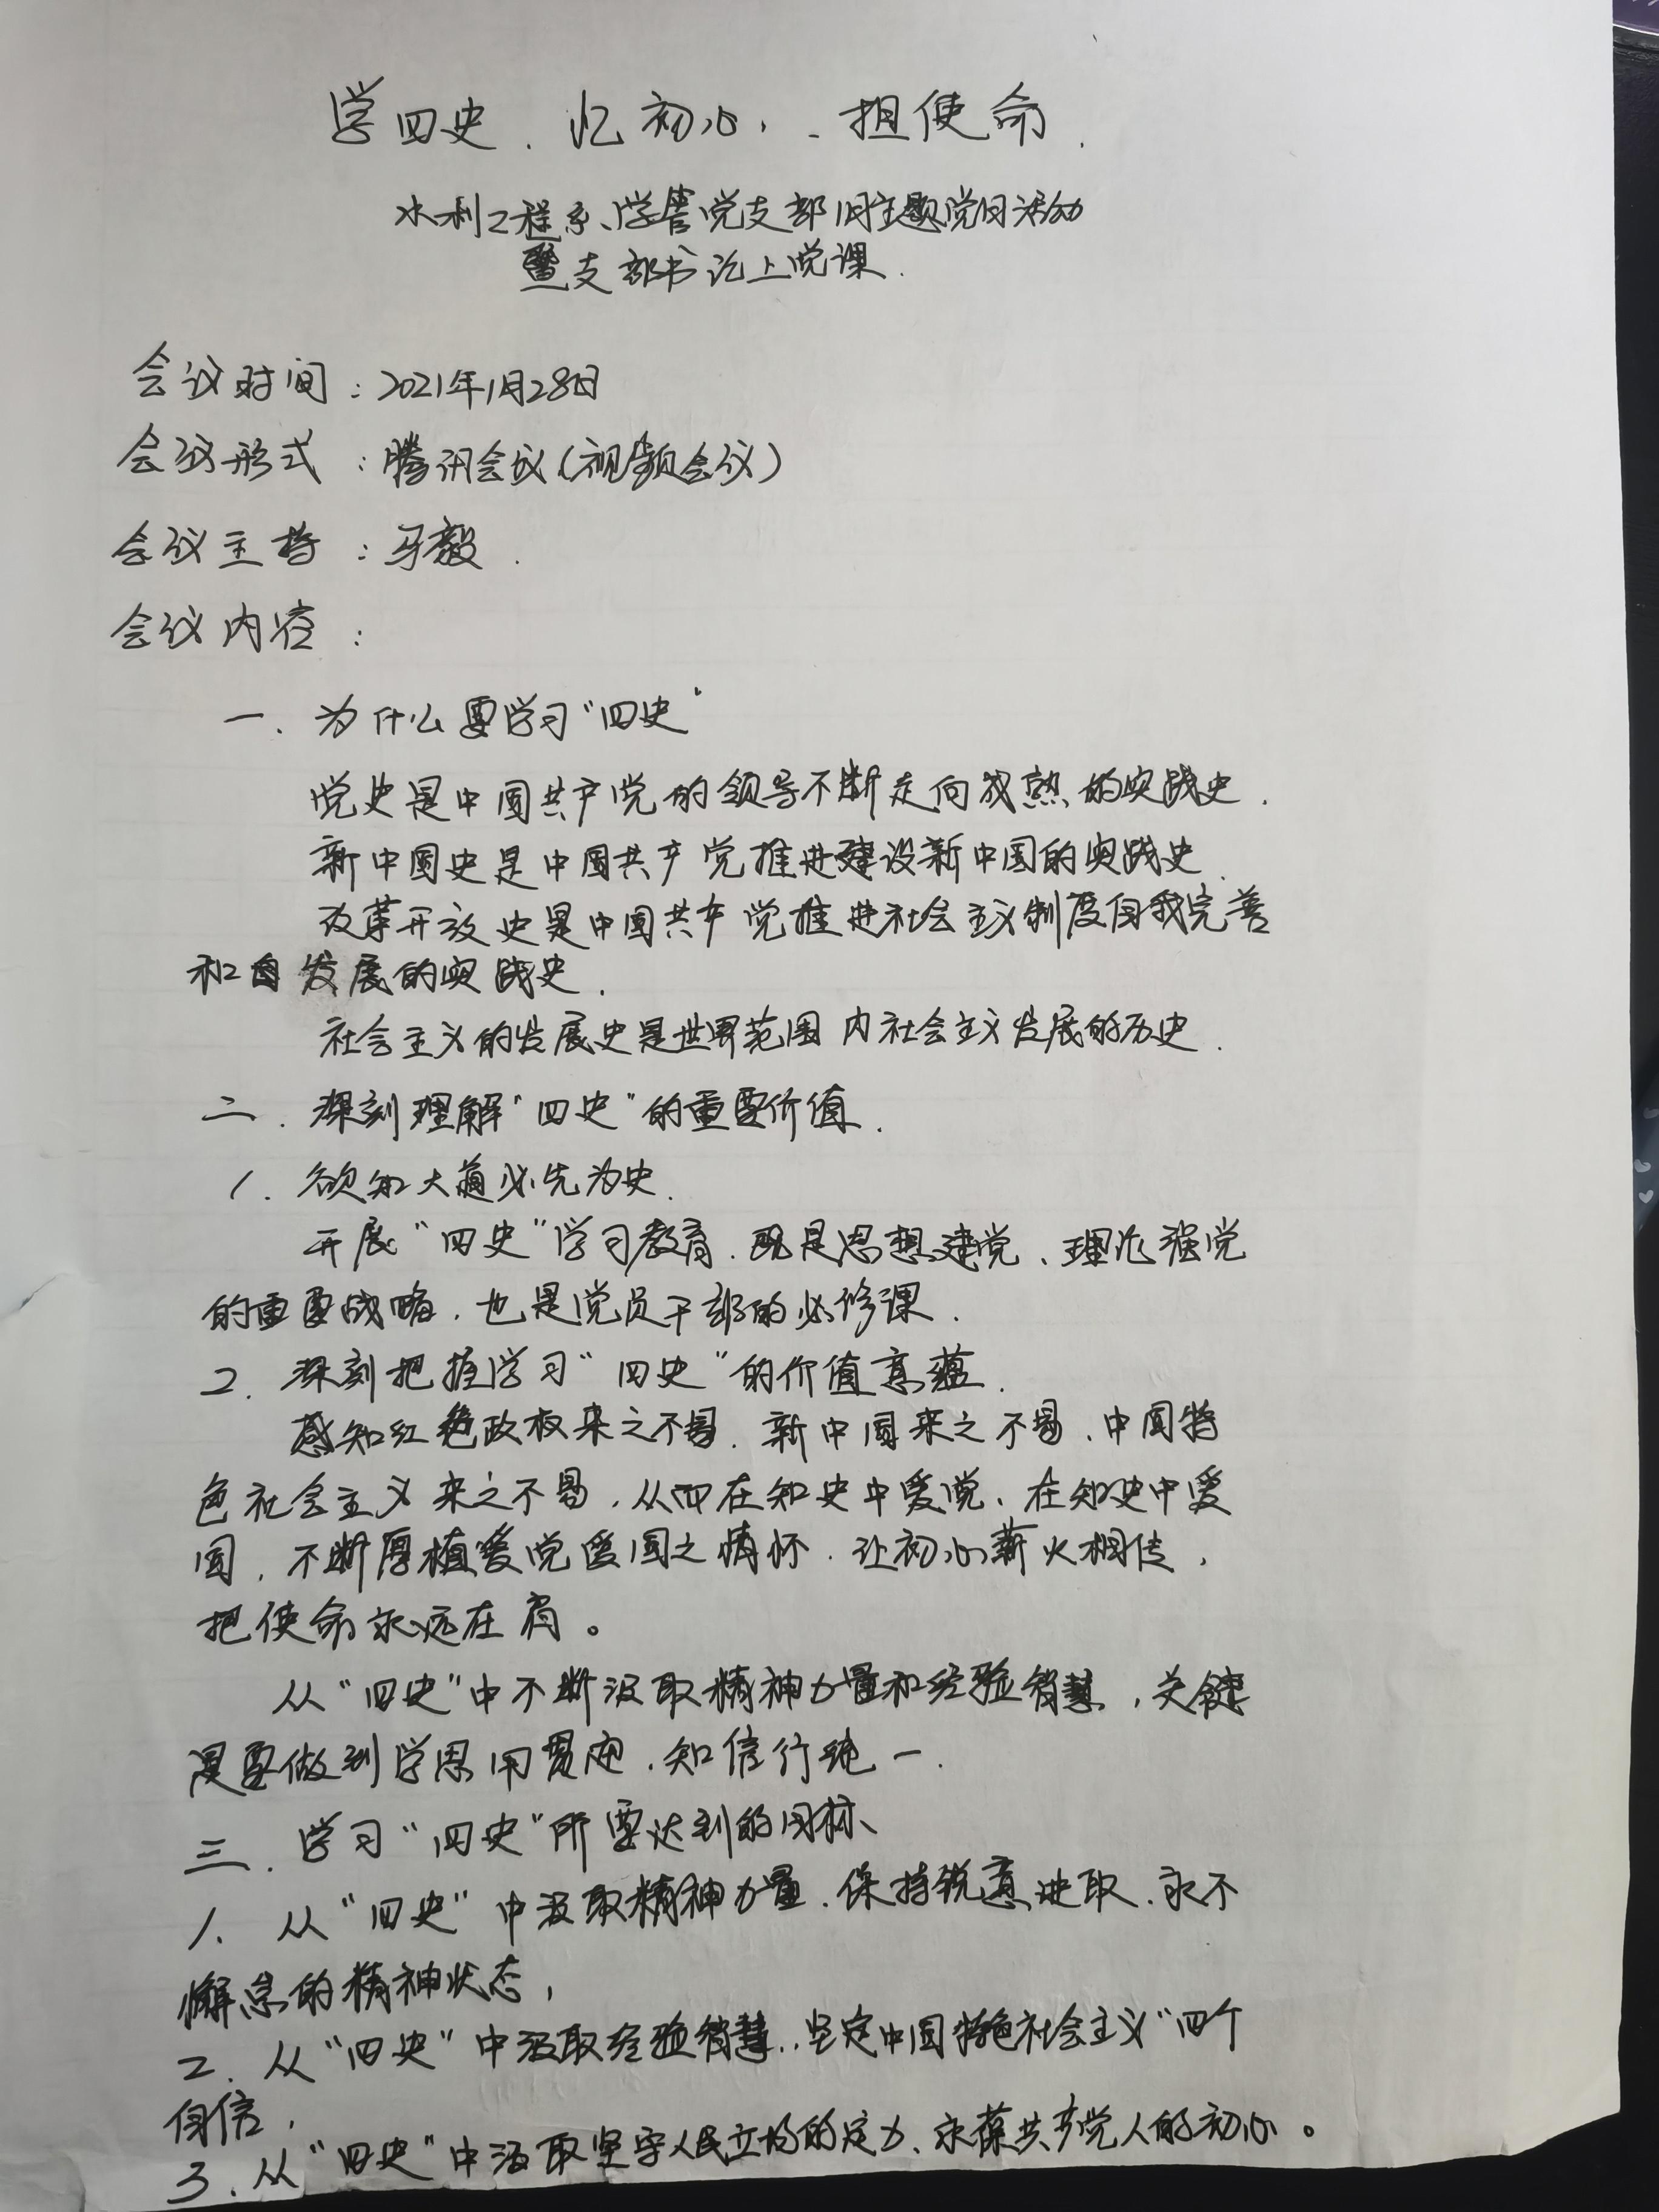 学四史、忆初心、担使命.
水利工程系、学管党支部1月主题党日活动
暨支部书记上党课.
会议时间：2021年1月28日
会议形式：腾讯会议(视频会议)
会议主持：马毅.
会议内容：
一、为什么要学习“四史”
党史是中国共产党的领导不断走向成熟的实践史.
新中国史是中国共产党推进建设新中国的实践史.
改革开放史是中国共产党推进社会主义制度自我完善
和自发展的实践史.
社会主义的发展史是世界范围内社会主义发展的历史.
二.深刻理解“四史”的重要价值.
1.欲知大道必先为史.
开展“四史”学习教育.既是思想建党、理论强党
的重要战略.也是党员干部的必修课.
2.深刻把握学习“四史”的价值意蕴.
感知红色政权来之不易.新中国来之不易、中国特
色社会主义来之不易,从而在知史中爱党、在知史中爱
国,不断厚植爱党爱国之情怀.让初心薪火相传,
把使命永远在肩。
从“四史”中不断汲取精神力量和经验智慧,关键
是要做到学思用贯通.知信行统一.
三.学习“四史”所要达到的目标、
1、从“四史”中汲取精神力量.保持锐意进取.永不
懈怠的精神状态,
2.从“四史”中汲取经验智慧..坚定中国特色社会主义“四个
自信,
3.从“四史”中汲取坚守人民立场的定力、永葆共产党人的初心。